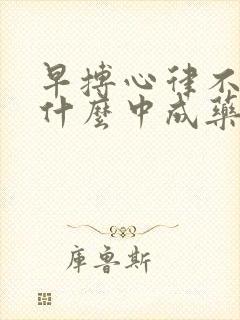 早搏心律不
什麼中成藥
庫魯斯